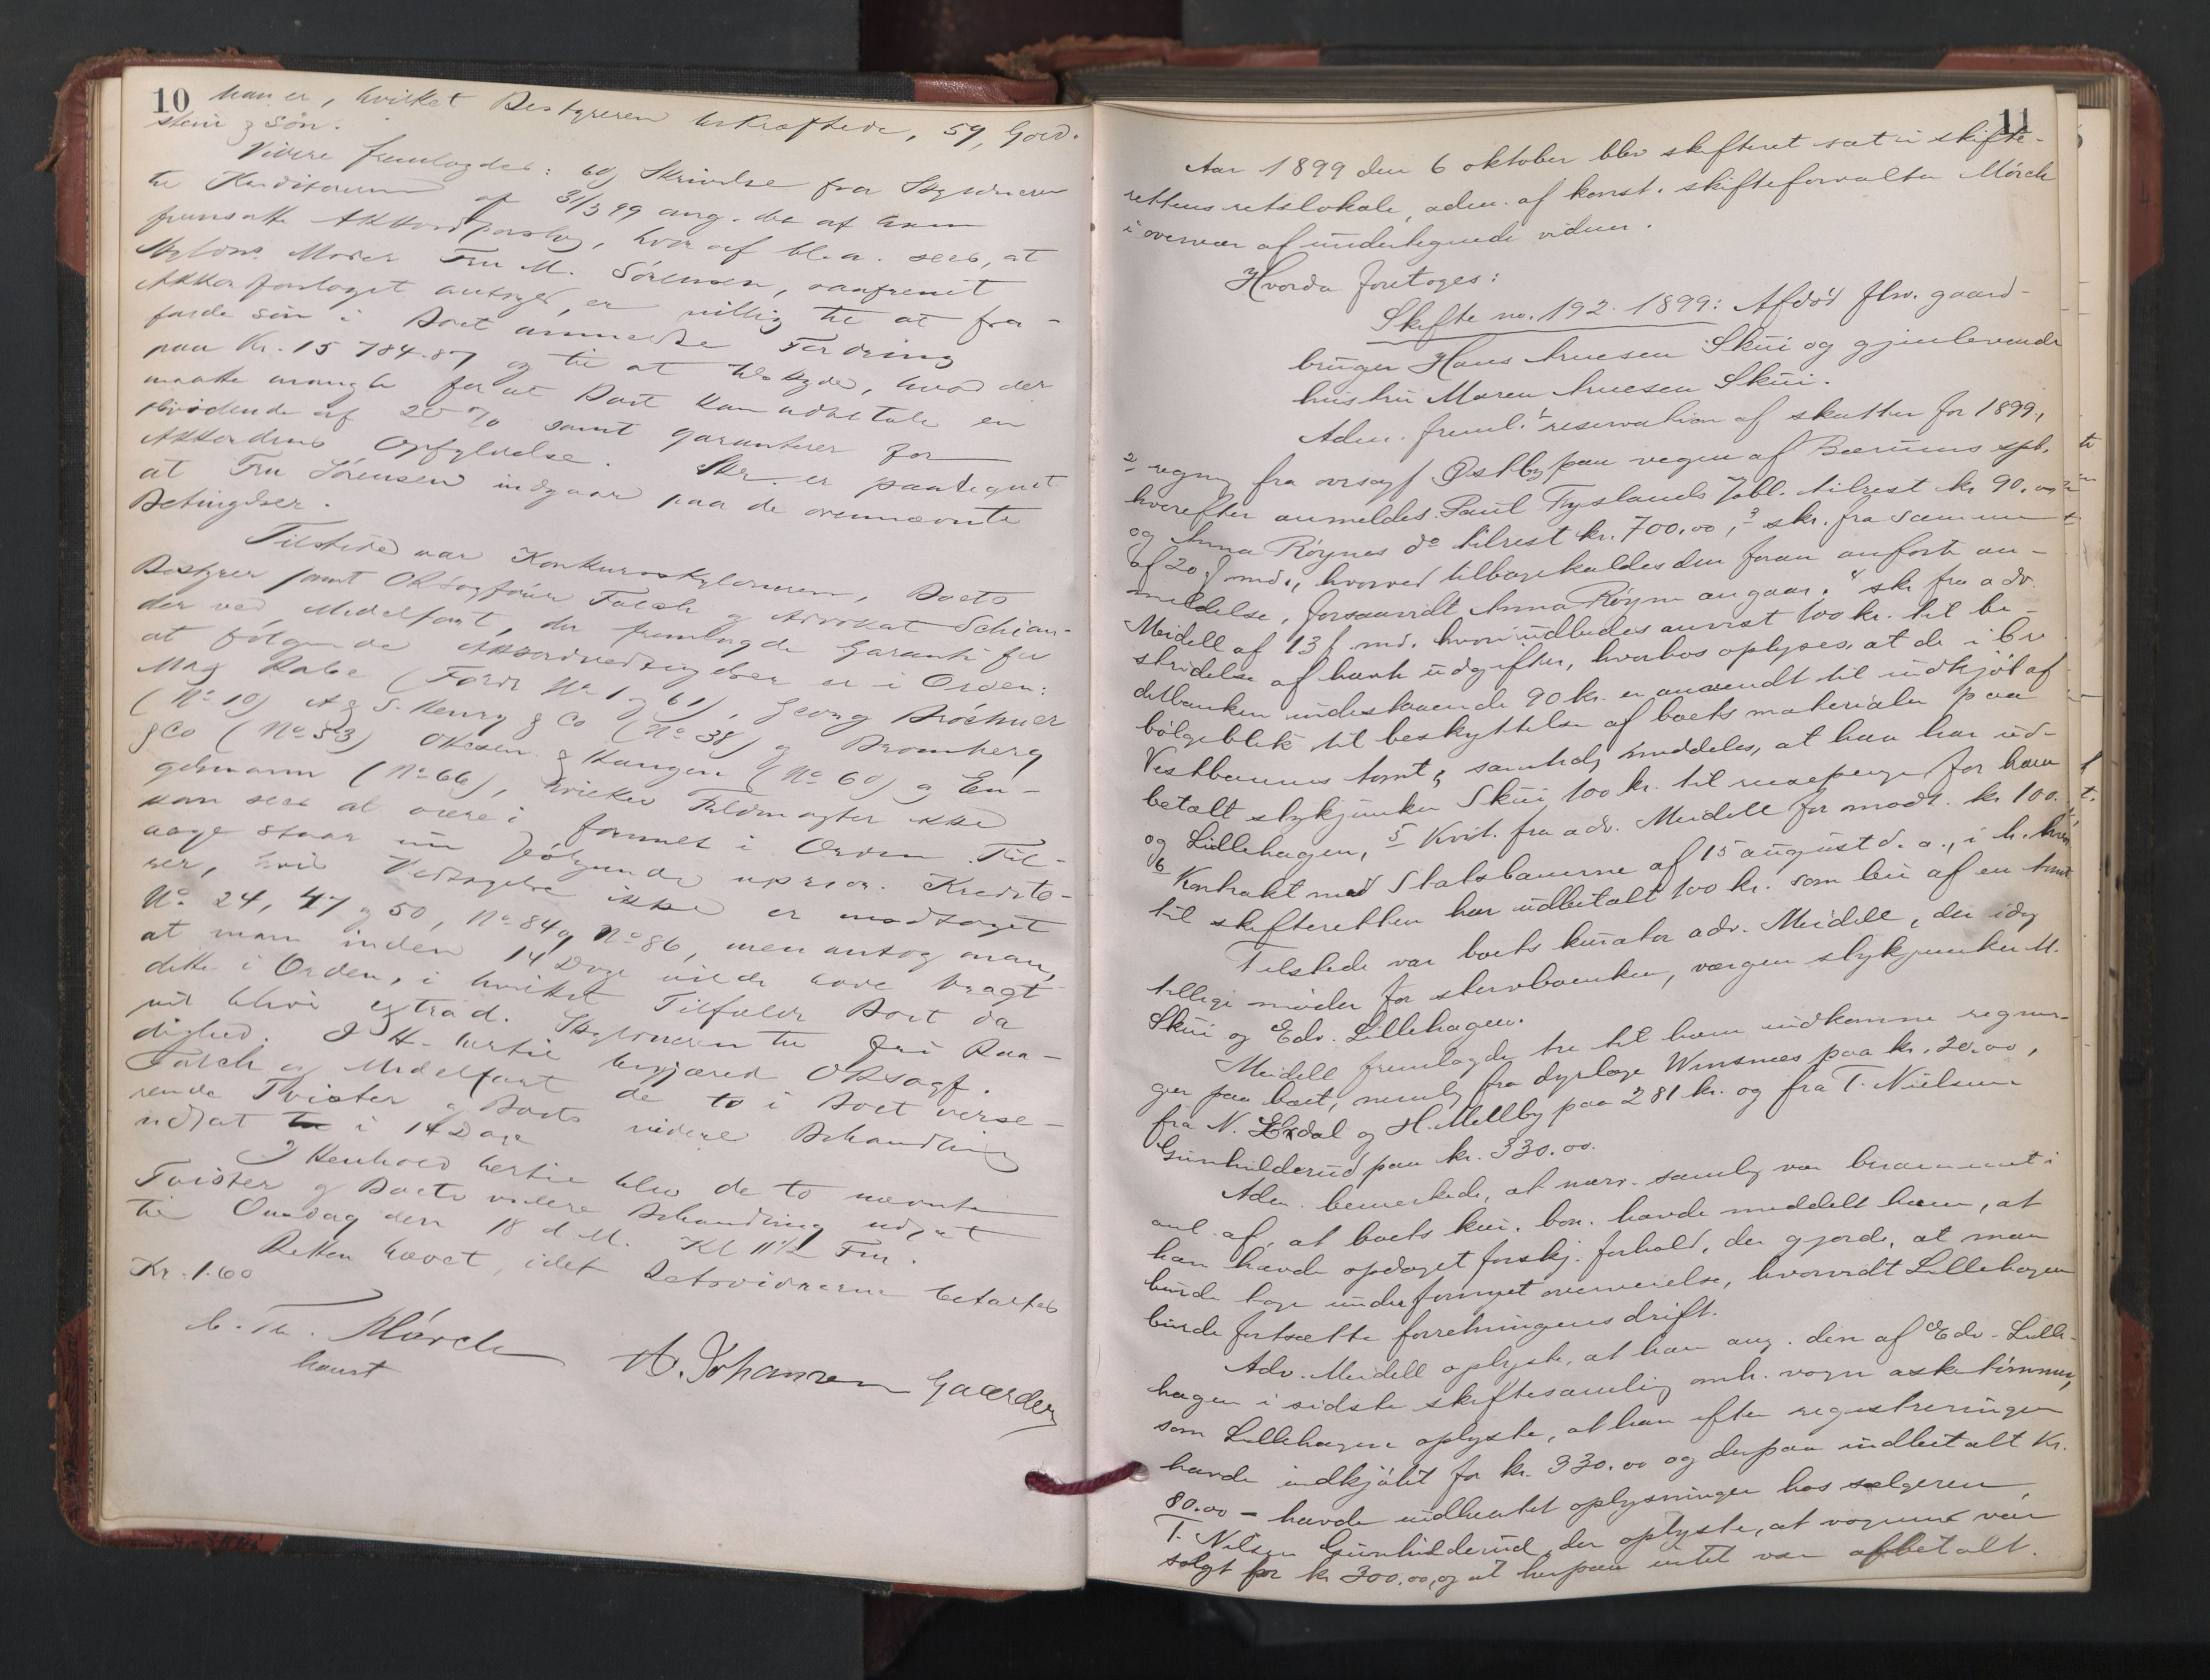 10 han er, hvilket Bestyreren bekræftede, 59, Gold-
stein & Søn.
Videre fremlagdes: 60, Skrivelse fra Skyldneren
til Kreditorerne af 31/3 99 ang. det af ham
fremsatte Akkordforslag, hvoraf bl. a. sees, at
Skyldns Moder Fru M. Sørensen, saafremt
Akkordforslaget antages, er villig til at fra-
falde sin i Boet anmeldte Fordring
paa Kr. 15 784.87 og til at tilskyde, hvad der
maatte mangle for at Boet kan udbetale en
Dividende af 20 % samt garanterer for
Akkordens Opfyldelse. Skr. er paategnet
at Fru Sørensen indgaar paa de ovennævnte
Betingelser.
Tilstede var Konkursskyldneren, Boets
Bestyrer samt ORsagfører Falch og Advokat Schian-
der ved Medelfart, der fremlagde Garanti for
at følgende Akkordvedtagelser er i Orden:
Mag Rabe (Fordr No 1 og 61), Georg Bröchner
(No 10) A & S. Henry & Co (No 38) og Bromberg
& Co (No 53) Olesen & Haugen (No 60) og En-
gelmann (No 66), hvilkes Fuldmagter ikke
kan sees at være i formel i Orden. Til-
bage staar nu følgende uprior. Kredito-
rer, hvis Vedtagelse ikke er modtaget
No 24, 47 og 50, No 84 og No 86, men antog man,
at man inden 14 Dage vilde have bragt
dette i Orden, i hvilket Tilfælde Boet da
vil blive extrad. Skyldneren til fri Raa-
dighed. I H. hertil begjæred ORsagf.
Falch og Medelfart de to i Boet verse-
rende Tvister og Boets videre Behandling
udsat i 14 Dage
I Henhold hertil blev de to nævnte
Tvister og Boets videre Behandling udsat
til Onsdag den 18 d. M. Kl 11½ Fm.
Retten hævet, idet Retsvidnerne betaltes
Kr. 1.60
C. Th. Mørch
konst
A. Johansen Gaarder
11
Aar 1899 den 6 oktober blev skifteret sat i skifte-
rettens retslokale, adm. af konst. skifteforvalter Mørch
i overvær af undertegnede vidner.
Hvorda foretoges:
Skifte no. 192. 1899: Afdød fhv. gaard-
bruger Hans Arnesen Skui og gjenlevende
hustru Maren Arnesen Skui.
Adm. freml. 1 reservation af skatter for 1899,
2 regng fra orsagf Østby paa vegne af Bærums spb.
hvorefter anmeldes Paul Tryslands Jobl. tilrest kr 90.00
og Anna Røynes do tilrest kr. 700.00, 3 skr. fra samme
af 20 f md., hvorved tilbagekaldes den foran anførte an-
meldelse, forsaavidt Anna Røyne angaar. 4 skr fra adv.
Meidell af 13 f md. hvori udbedes anvist 100 kr. til be-
stridelse af havte udgifter, hvorhos oplyses, at de i Cre
ditbanken indestaaende 90 kr. er anvendt til indkjøb af
bølgeblik til beskyttelse af boets materialer paa
Vestbanens tomt, samtidig meddeles, at han har ud-
betalt stykjunker Skui 100 kr. til reisepenge for ham
og Lillehagen, 5 Kvit. fra adv. Meidell for modt. kr 100.
6 Kontrakt med Statsbanerne af 15 august d. a., i h. hvor
til skifteretten har udbetalt 100 kr. som leie af en tomt
Tilstede var boets kurator adv. Meidell, der idag
tillige møder for stervboenken,værgen stykjunker M.
Skui og Edv. Lillehagen.
Meidell fremlagde tre til ham indkomne regnin-
ger paa boet, nemlig fra dyrlæge Winsnes paa kr. 20.00,
fra N. Ekdal og H. Mellby paa 281 kr. og fra T. Nielsen
Gunhilderud paa kr. 330.00.
Adm. bemerkede, at nærv. samling var berammet i
anl. af, at boets kur. bon. havde meddelt ham, at
han havde opdaget forskj. forhold, der gjorde, at man
burde tage under fornyet overveielse, hvorvidt Lillehagen
burde fortsætte forretningens drift.
Adv. Meidell oplyste, at han ang. den af Edv. Lille-
hagen i sidste skiftesamling omh. vogn asketømmer,
som Lillehagen oplyste, at han efter registreringen
havde indkjøbt for kr. 330.00 og derpaa indbetalt Kr.
80.00 – havde indhentet oplysninger hos sælgeren,
T. Nilsen Gunhilderud, der oplyste, at vognen var
solgt for kr 300.00, og at herpaa intet var afbetalt.